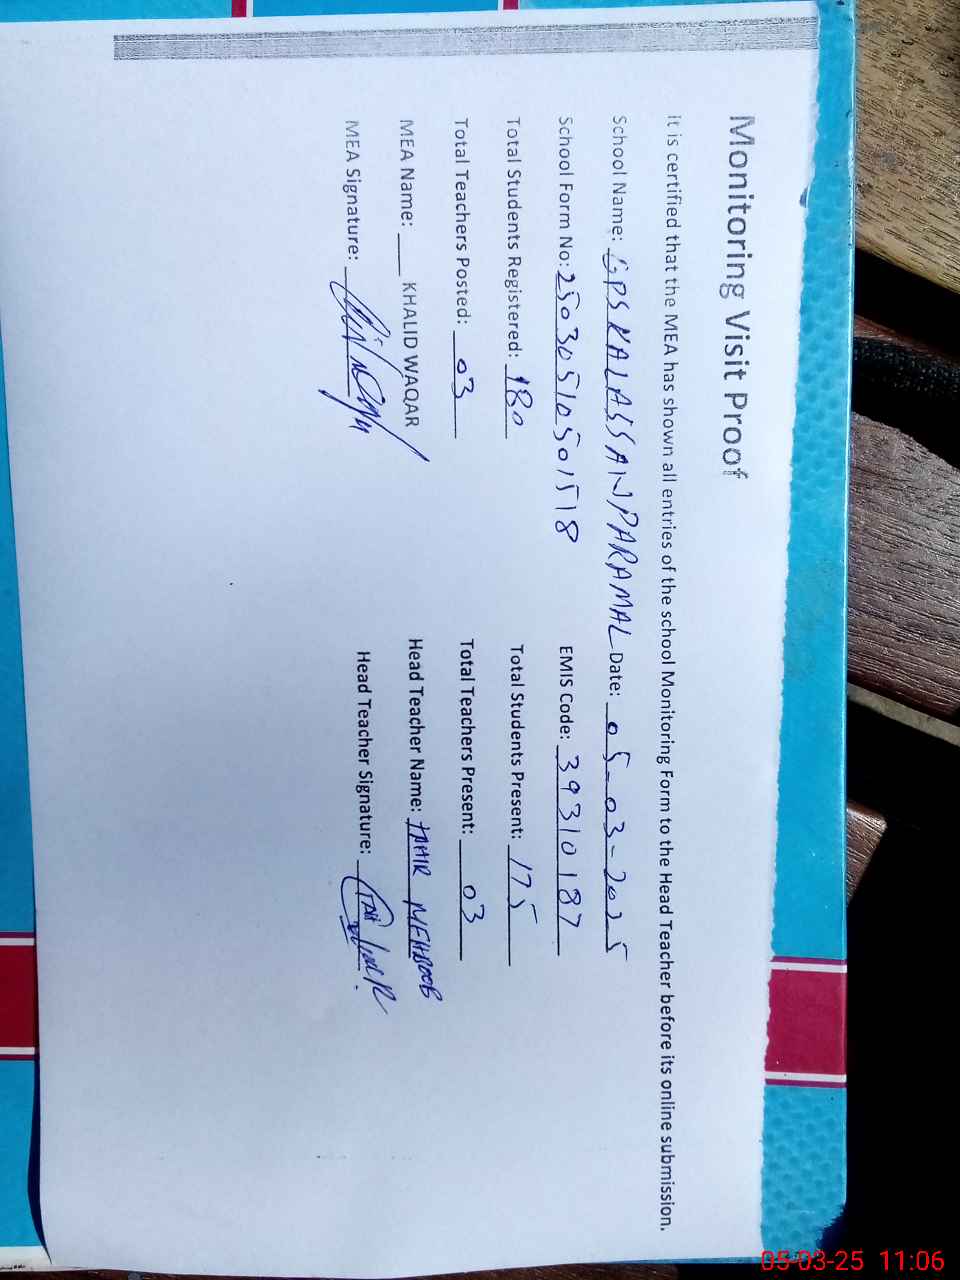 Monitoring Visit Proof
It is certified that the MEA has shown all entries of the school Monitoring Form to the Head Teacher before its online submission.
School Name: GPS KALASSAN PARAMAL Date: 05-03-2025
School Form No: 2503051050 1518 EMIS Code: 39310187
Total Students Registered: 180 Total Students Present: 175
Total Teachers Posted: 03 Total Teachers Present: 03
MEA Name: KHALID WAQAR Head Teacher Name: TAHIR MEHBOOB
MEA Signature: Head Teacher Signature:
05-03-25 11:06